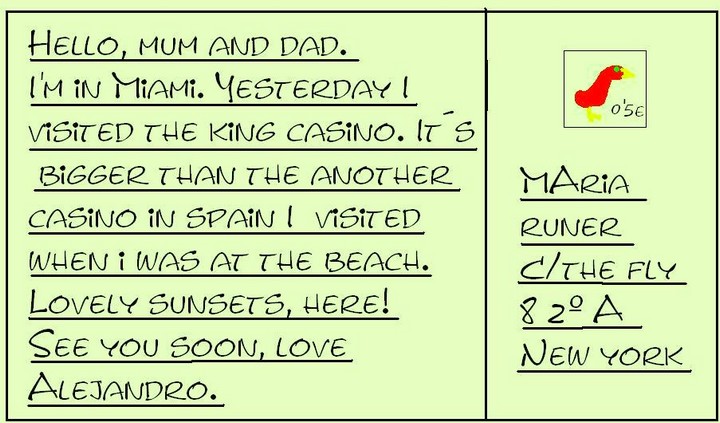 Hello, mum and dad.
I'm in Miami. Yesterday I
visited the king casino. It´s
bigger than the another
casino in Spain I visited
when i was at the beach.
Lovely sunsets, here!
See you soon, love
Alejandro.
0'5€
MAria
runer
C/the fly
8 2º A
New york